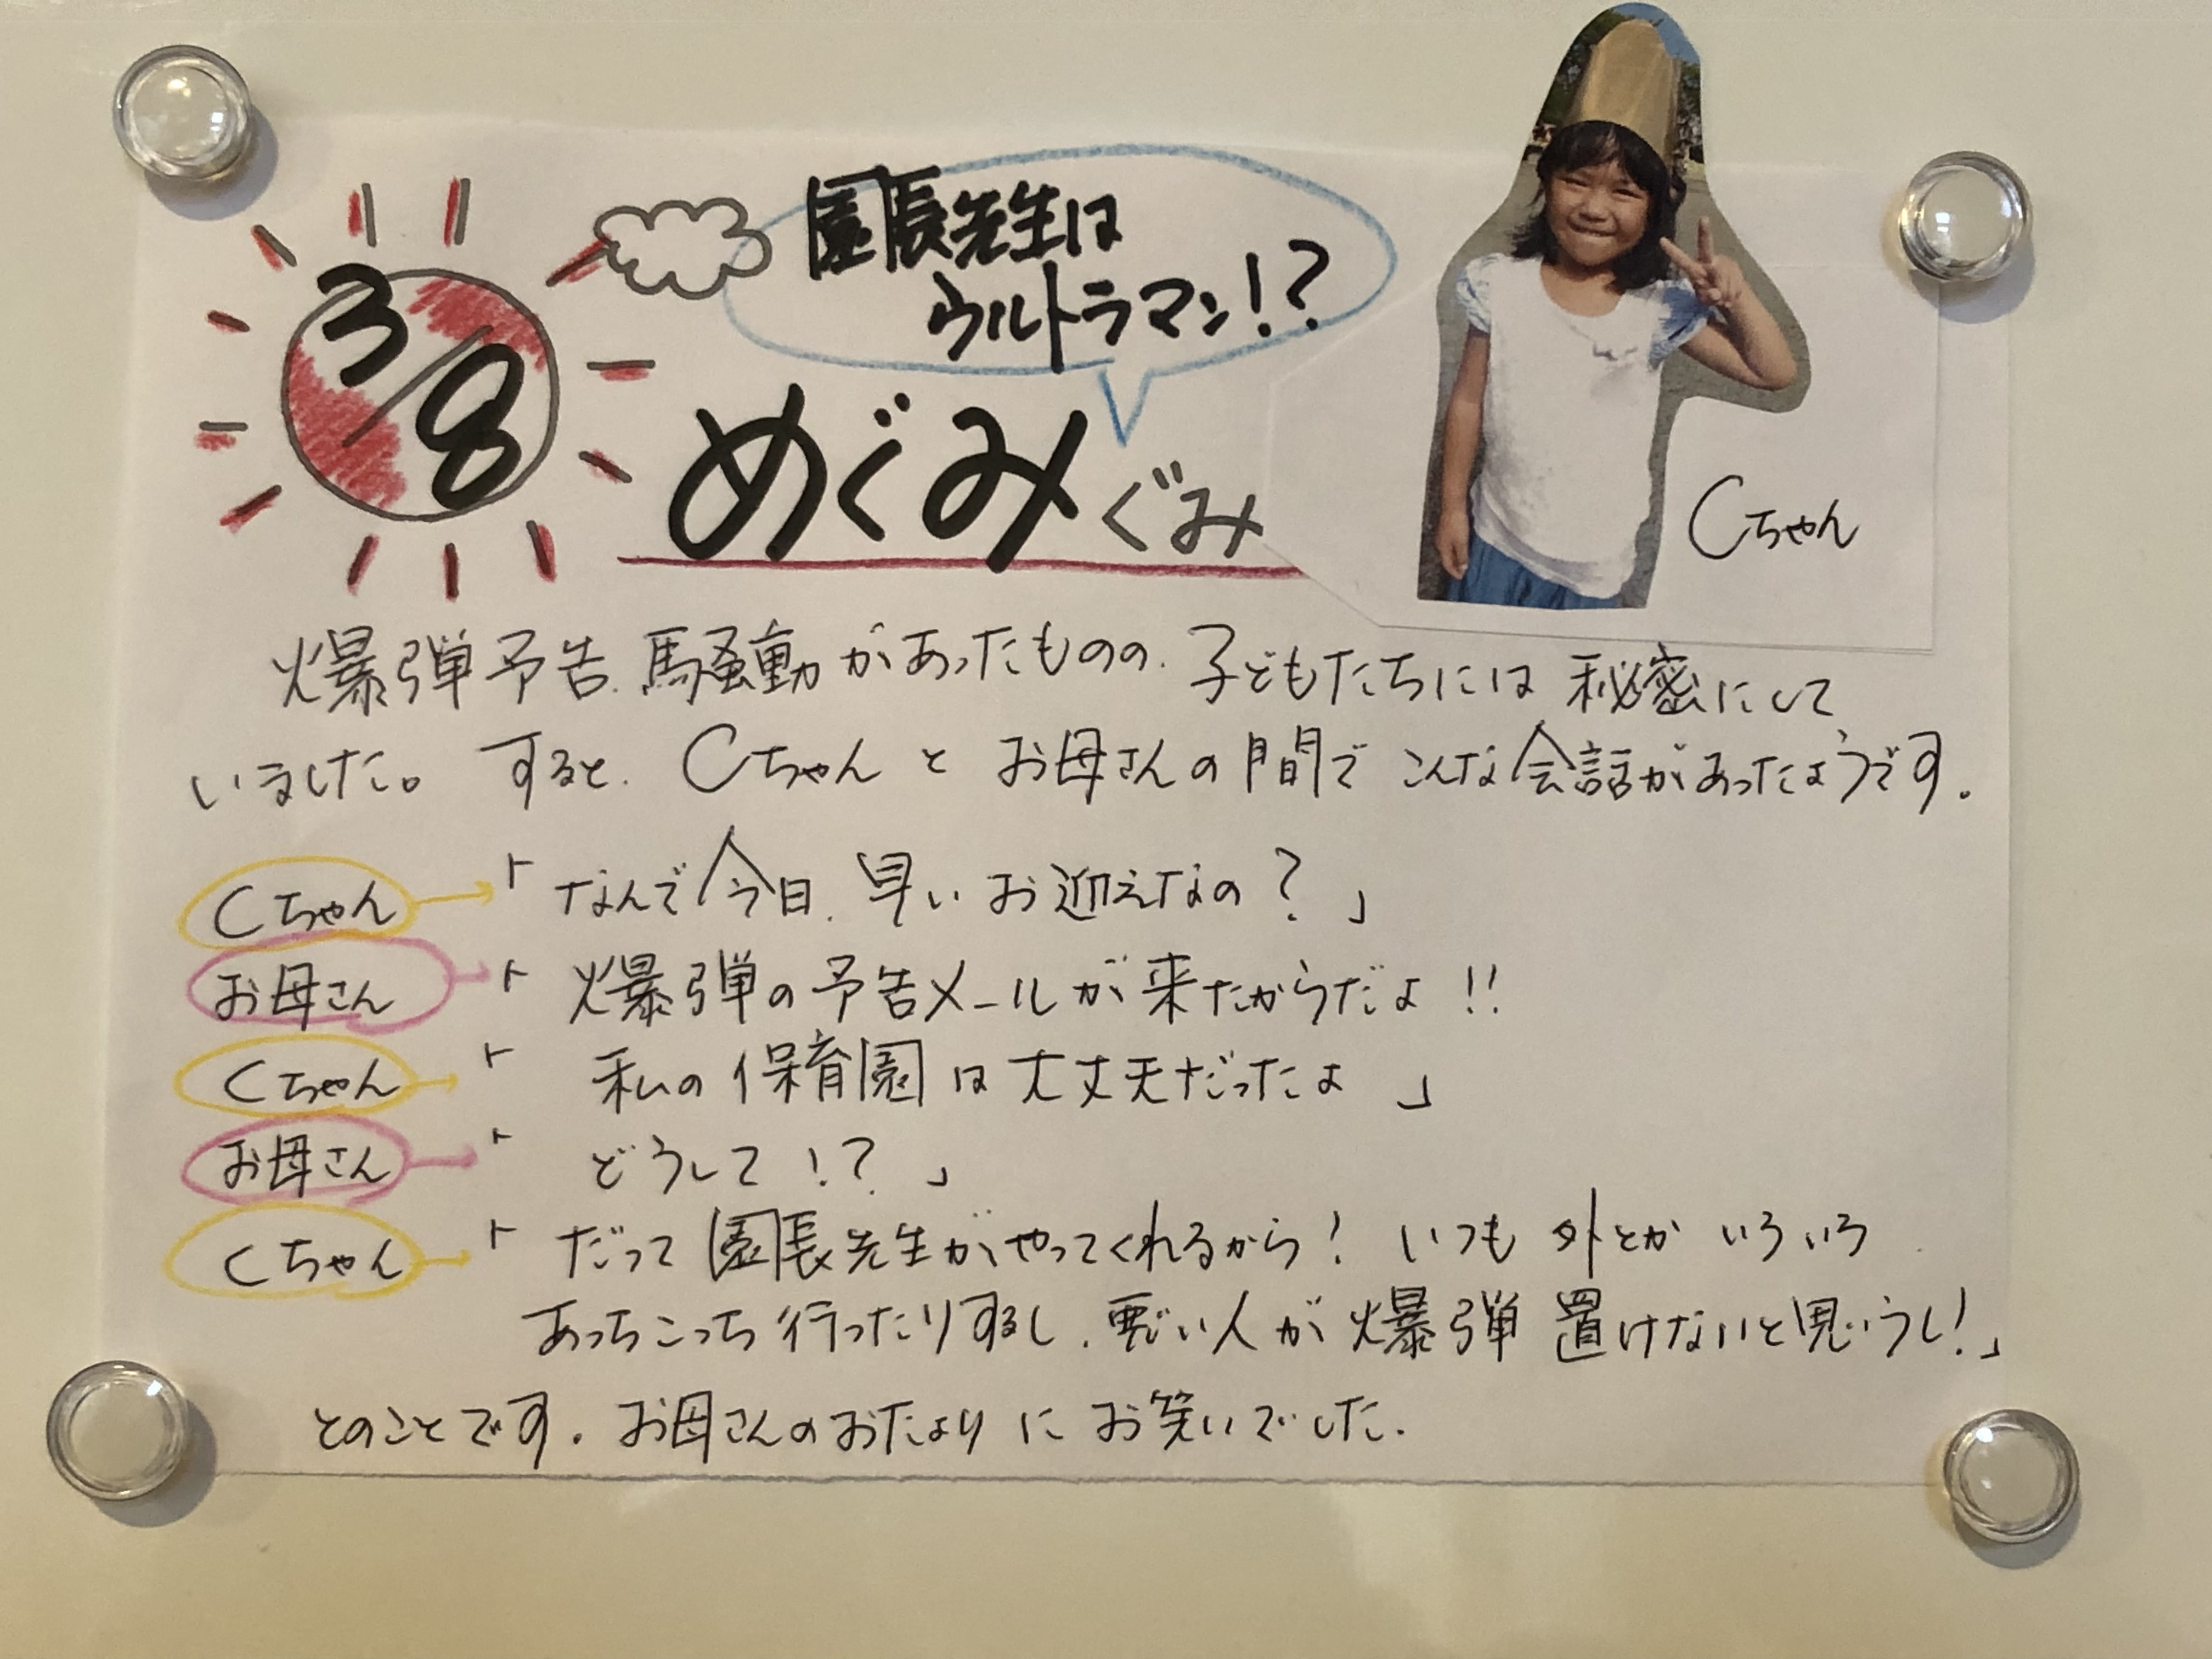 3/8
園長先生は
ウルトラマン!?
めぐみぐみ
Cちゃん
爆弾予告、騒動があったものの、子どもたちには秘密にして
いました。すると、Cちゃんとお母さんの間でこんな会話があったようです。
Cちゃん→「なんで今日、早いお迎えなの?」
お母さん→「爆弾の予告メールが来たからだよ!!
Cちゃん→「私の保育園は大丈夫だったよ」
お母さん→「どうして!?」
Cちゃん→「だって園長先生がやってくれるから!いつも外とかいろいろ
あっちこっち行ったりするし、悪い人が爆弾置けないと思うし!」
とのことです。お母さんのおたよりにお笑いでした。